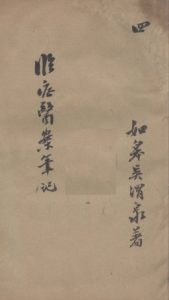 四
臨症醫案筆記
如皋吳渭泉著